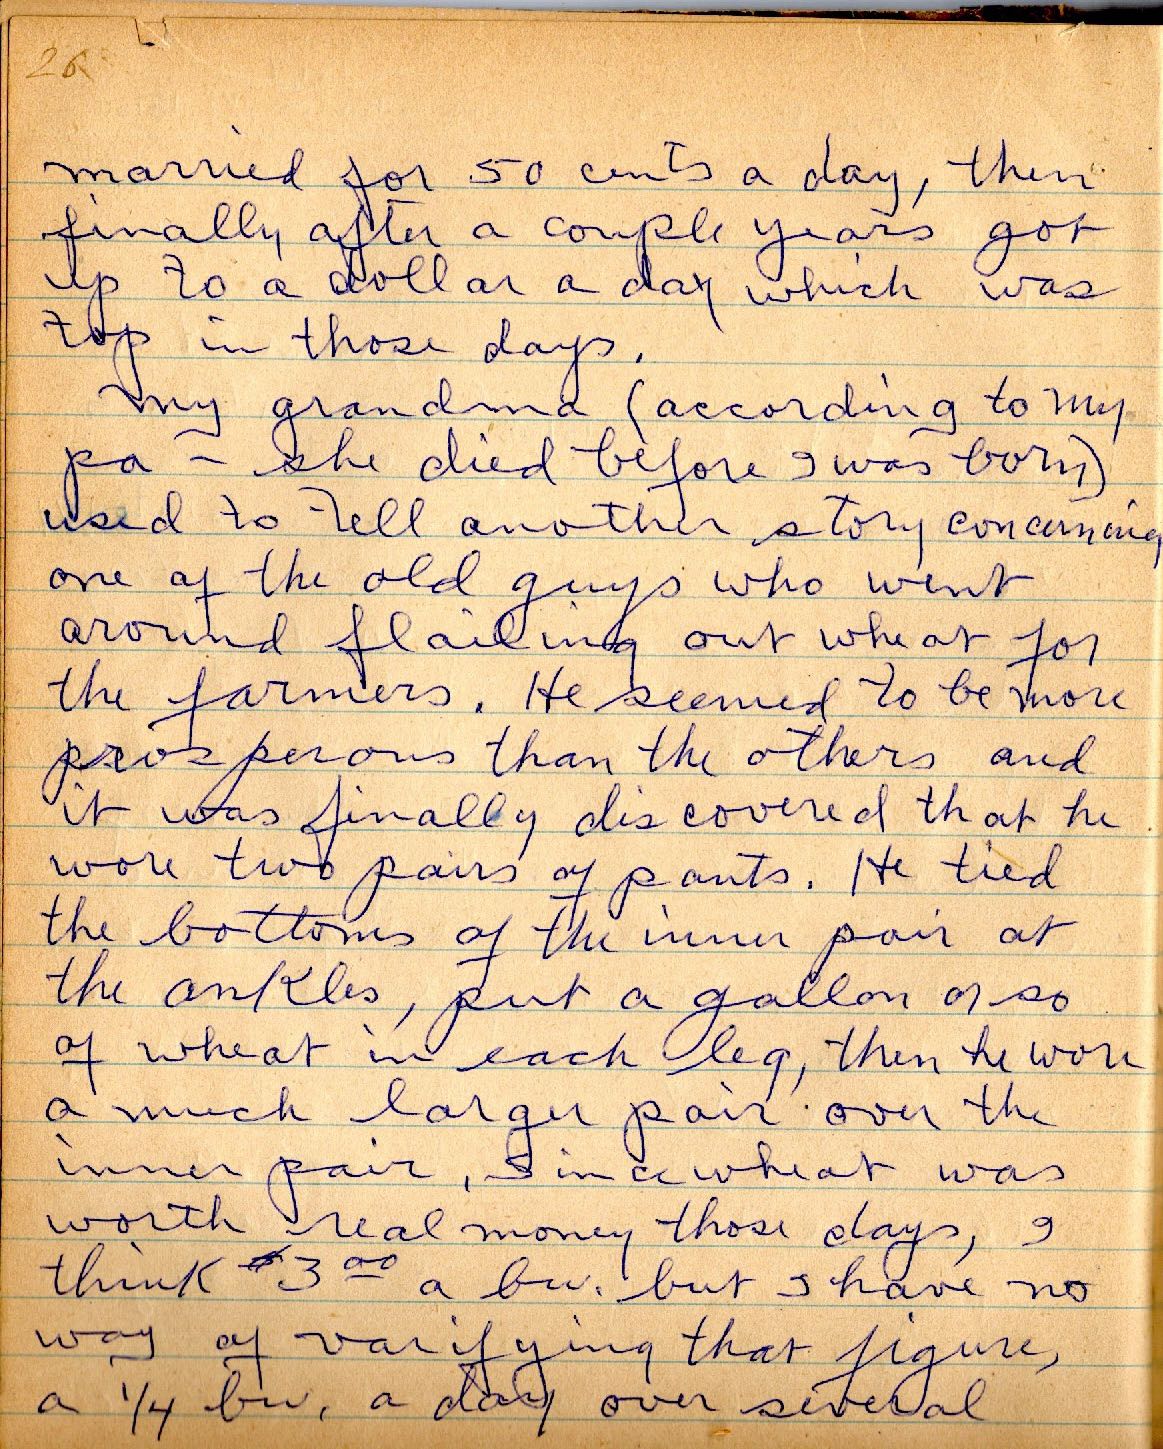 26
married for 50 cents a day, then
finally after a couple years got
up to a dollar a day which was
top in those days.
My grandma (according to my
pa - she died before I was born)
used to tell another story concerning
one of the old guys who went
around flailing out wheat for
the farmers. He seemed to be more
prosperous than the others and
it was finally discovered that he
wore two pairs of pants. He tied
the bottoms of the inner pair at
the ankles, put a gallon or so
of wheat in each leg, then he wore
a much larger pair over the
inner pair, since wheat was
worth real money those days, I
think $3.00 a bu. but I have no
way of varifying that figure,
a 1/4 bu. a day over several